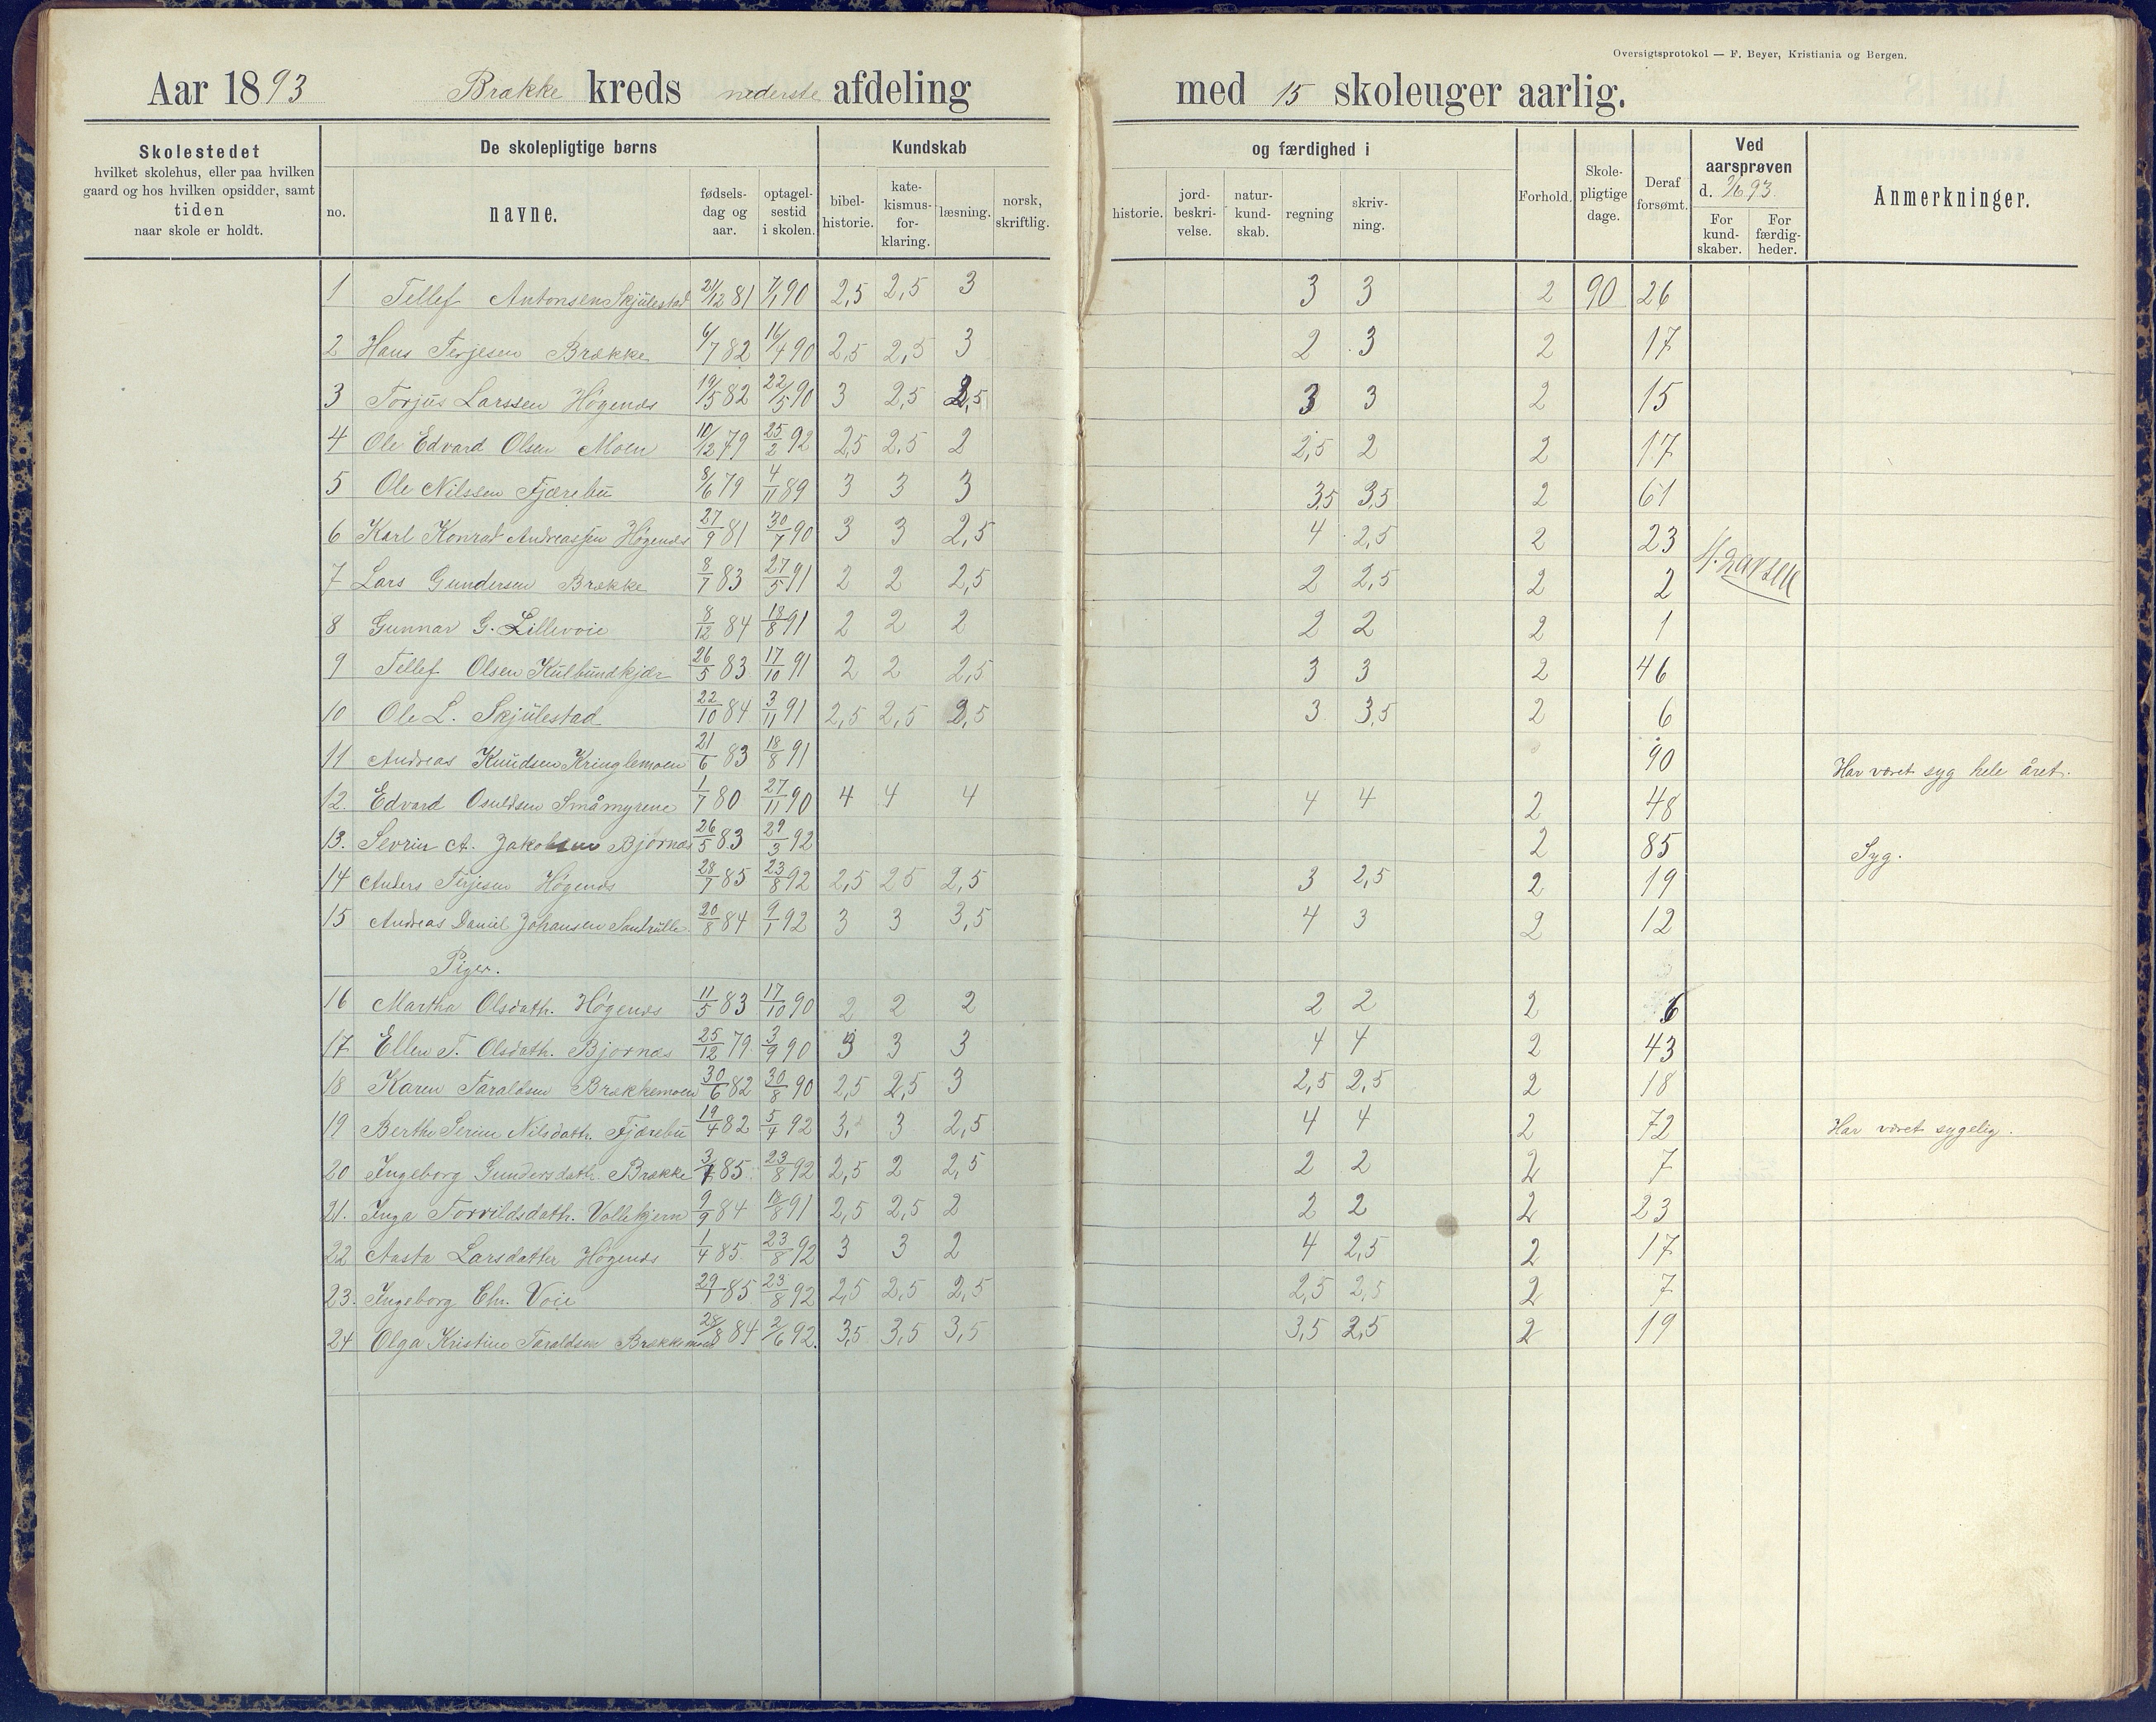 Oversigtsprotokol — F. Beyer, Kristiania og Bergen.
Aar 1893 Brække kreds nederste afdeling med 15 skoleuger aarlig.
Skolestedet
hvilket skolehus, eller paa hvilken
gaard og hos hvilken opsidder, samt
tiden
naar skole er holdt.
De skolepligtige børns
no.
navne.
fødsels-
dag og
aar.
optagel-
sestid
i skolen.
Kundskab
bibel-
historie.
kate-
kismus-
for-
klaring.
læsning.
norsk,
skriftlig.
og færdighed i
historie.
jord-
beskri-
velse.
natur-
kund-
skab.
regning
skriv-
ning.
Forhold.
Skole-
pligtige
dage.
Deraf
forsømt.
Ved
aarsprøven
d. 2/6 93.
For
kund-
skaber.
For
færdig-
heder.
Anmerkninger.
1 Tellef Antonsen Skjulestad 21/12 81 7/1 90 2,5 2,5 3 3 3 2 90 26
2 Hans Terjesen Brække 6/7 82 16/4 90 2,5 2,5 3 2 3 2 17
3 Torjus Larssen Högenes 19/5 82 22/5 90 3 2,5 2,5 3 3 2 15
4 Ole Edvard Olsen Moen 10/12 79 25/2 92 2,5 2,5 2 2,5 2 2 17
5 Ole Nilssen Fjærebu 8/6 79 4/11 89 3 3 3 3,5 3,5 2 61
6 Karl Konrad Andreassen Högenes 27/9 81 30/7 90 3 3 2,5 4 2,5 2 23
7 Lars Gundersen Brække 8/7 83 27/5 91 2 2 2,5 2 2,5 2 2
8 Gunnar G. Lillevoie 8/12 84 18/8 91 2 2 2 2 2 2 1
9 Tellef Olsen Kulbundkjær 26/5 83 17/10 91 2 2 2,5 3 3 2 46
10 Ole L. Skjulestad 22/10 84 3/11 91 2,5 2,5 2,5 3 3,5 2 6
11 Andreas Knudsen Kringlemoen 21/6 83 18/8 91 90 Har været syg hele året.
12. Edvard Osuldsen Småmyrene 1/7 80 27/11 90 4 4 4 4 4 2 48
13. Sevrin A. Jakobsen Bjørnes 26/5 83 29/3 92 2 85 Syg.
14 Anders Terjesen Högenes 28/7 85 23/8 92 2,5 25 2,5 3 2,5 2 19
15 Andreas Daniel Johansen 20/8 84 9/1 92 3 3 3,5 4 3 2 12
Piger.
16 Martha Olsdatr. Högenes 11/5 83 17/10 90 2 2 2 2 2 2 6
17 Ellen T. Olsdatr. Bjørnes 25/12 79 3/9 90 3 3 3 4 4 2 43
18 Karen Taraldsen Brækkemoen 30/6 82 30/8 90 2,5 2,5 3 2,5 2,5 2 18
19 Berthe Serine Nilsdatr. Fjærebu 19/4 82 5/4 92 3, 3 2,5 4 4 2 72 Har været sygelig.
20 Ingeborg Gundersdatr. Brække 3/7 85 23/8 92 2,5 2 2,5 2 2 2 7
21. Inga Torvildsdatr. Vallekjern 9/9 84 18/8 91 2,5 2,5 2 2 2 2 23
22 Aasta Larsdatter Högenes 1/4 85 23/8 92 3 3 2 4 2,5 2 17
23. Ingeborg Chr. Voie 29/1 85 23/8 92 2,5 2,5 2,5 2,5 2,5 2 7
24 Olga Kristine Taraldsen Brækkemoen 28/8 84 2/6 92. 3,5 3,5 3,5 3,5 2,5 2 19